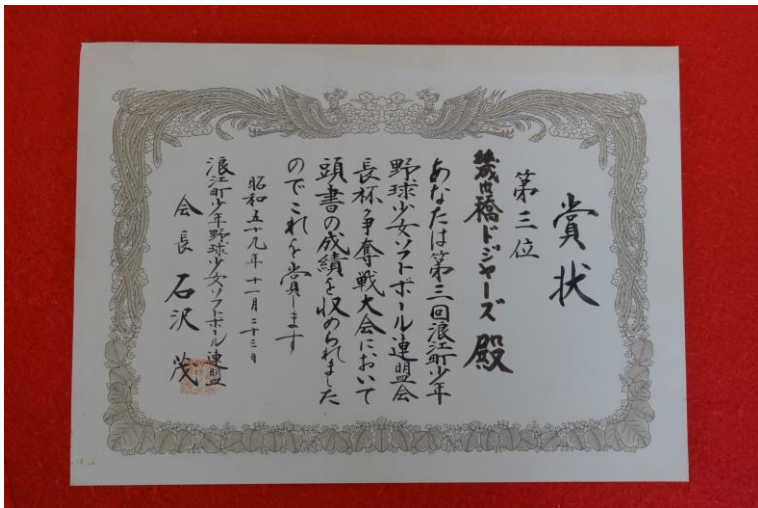 賞状
第三位
幾世橋ドジャーズ殿
あなたは第三回浪江町少年
野球少女ソフトボール連盟会
長杯争奪戦大会において
頭書の成績を収められました
のでこれを賞します
昭和五十九年十一月二十三日
浪江町少年野球少女ソフトボール連盟
会長 石沢茂